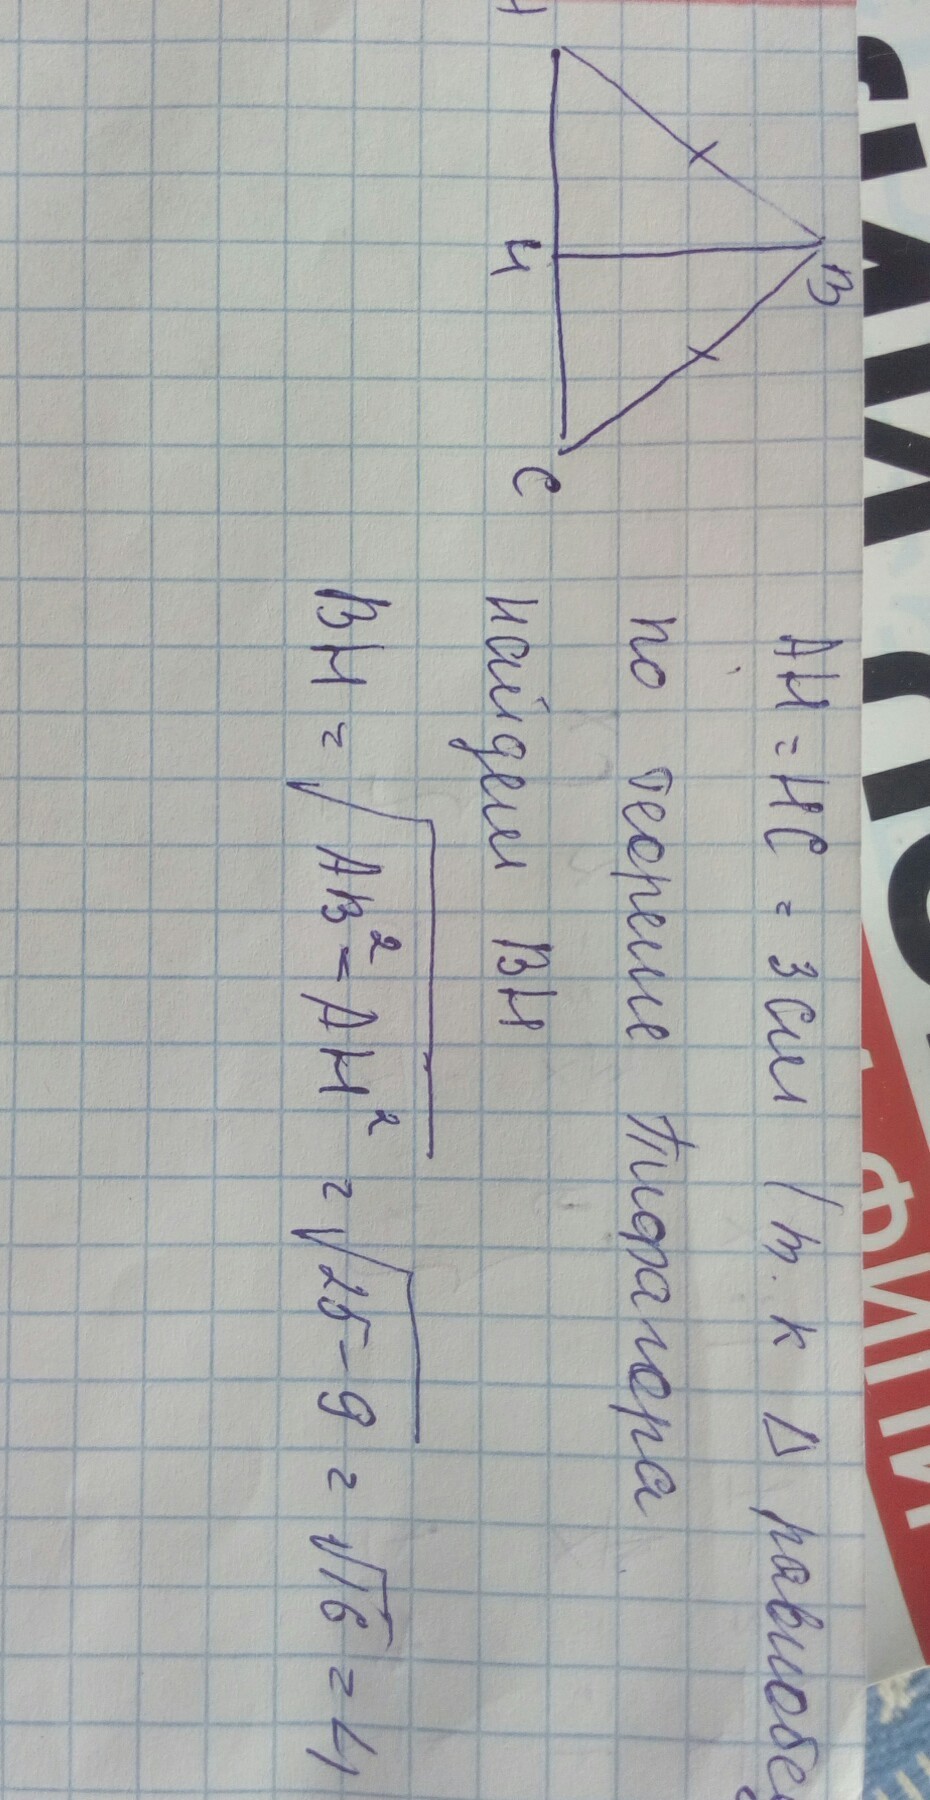 B
H
C
AH = HC = 3см /т. к Δ равнобе
по теореме Пифагора
найдем BH
BH = √AB² - AH² = √25-9 = √16 = 4